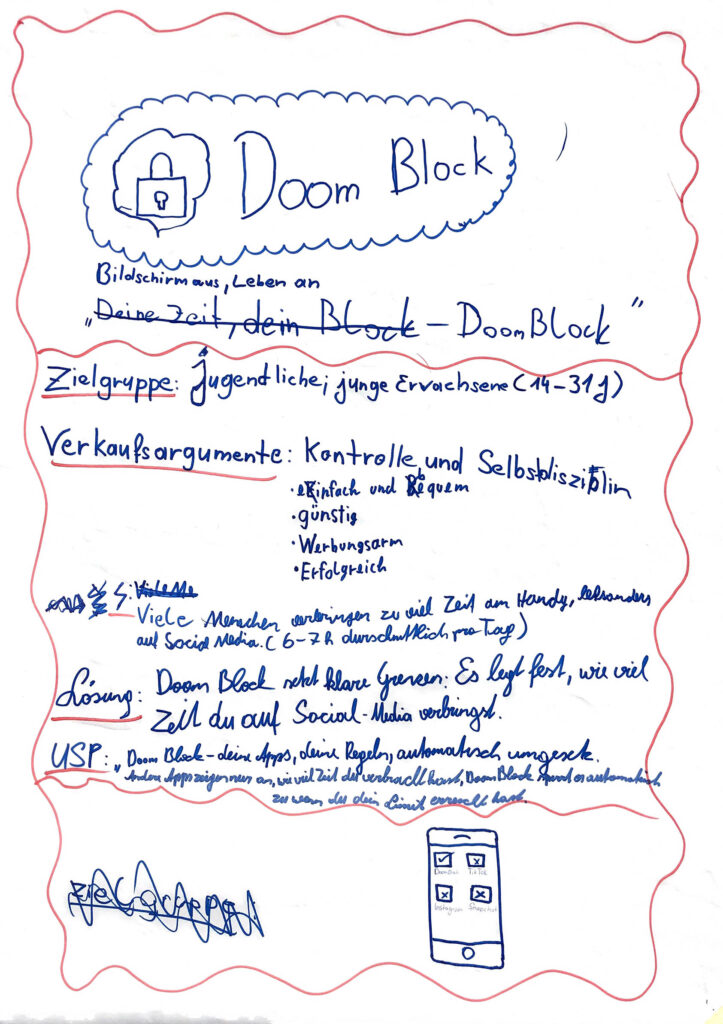 Doom Block
Bildschirm aus, Leben an
„Deine Zeit, dein Block – DoomBlock"
Zielgruppe: Jugendliche, junge Erwachsene (14–31J)
Verkaufsargumente: Kontrolle und Selbstdisziplin
• einfach und bequem
• günstig
• Werbungsarm
• Erfolgreich
Viele Menschen verbringen zu viel Zeit am Handy, besonders
auf Social Media. (6–7h durschnittlich pro Tag)
Lösung: Doom Block setzt klare Grenzen: Es legt fest, wie viel
Zeit du auf Social-Media verbringst.
USP: „Doom Block – deine Apps, deine Regeln, automatisch umgesetz.
Andere Apps zeigen nur an, wie viel Zeit du verbracht hast, Doom Block automatisch
zu wenn du dein Limit erreicht hast.
Zielgruppe
DoomBlock TikTok
Instagram Snapchat